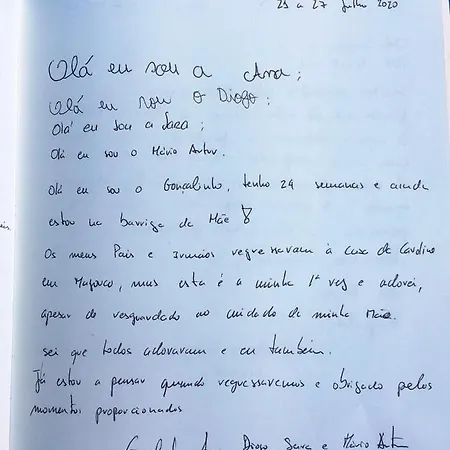 25 a 27 Julho 2020
Olá eu sou a Ana;
Olá eu sou o Diogo;
Olá eu sou a Sara;
Olá eu sou o Mário Artur.
Olá eu sou o Gonçalinho, tenho 24 semanas e ainda
estou na barriga da Mãe
Os meus Pais e Irmãos regressaram à Casa de Cardino
em , mas esta é a minha 1ª vez e adorei,
apesar de resguardado ao cuidado de minha Mãe.
sei que todos adoraram e eu também.
Já estou a pensar quando regressaremos e obrigado pelos
momentos proporcionados
Diogo Sara e Mário Artur